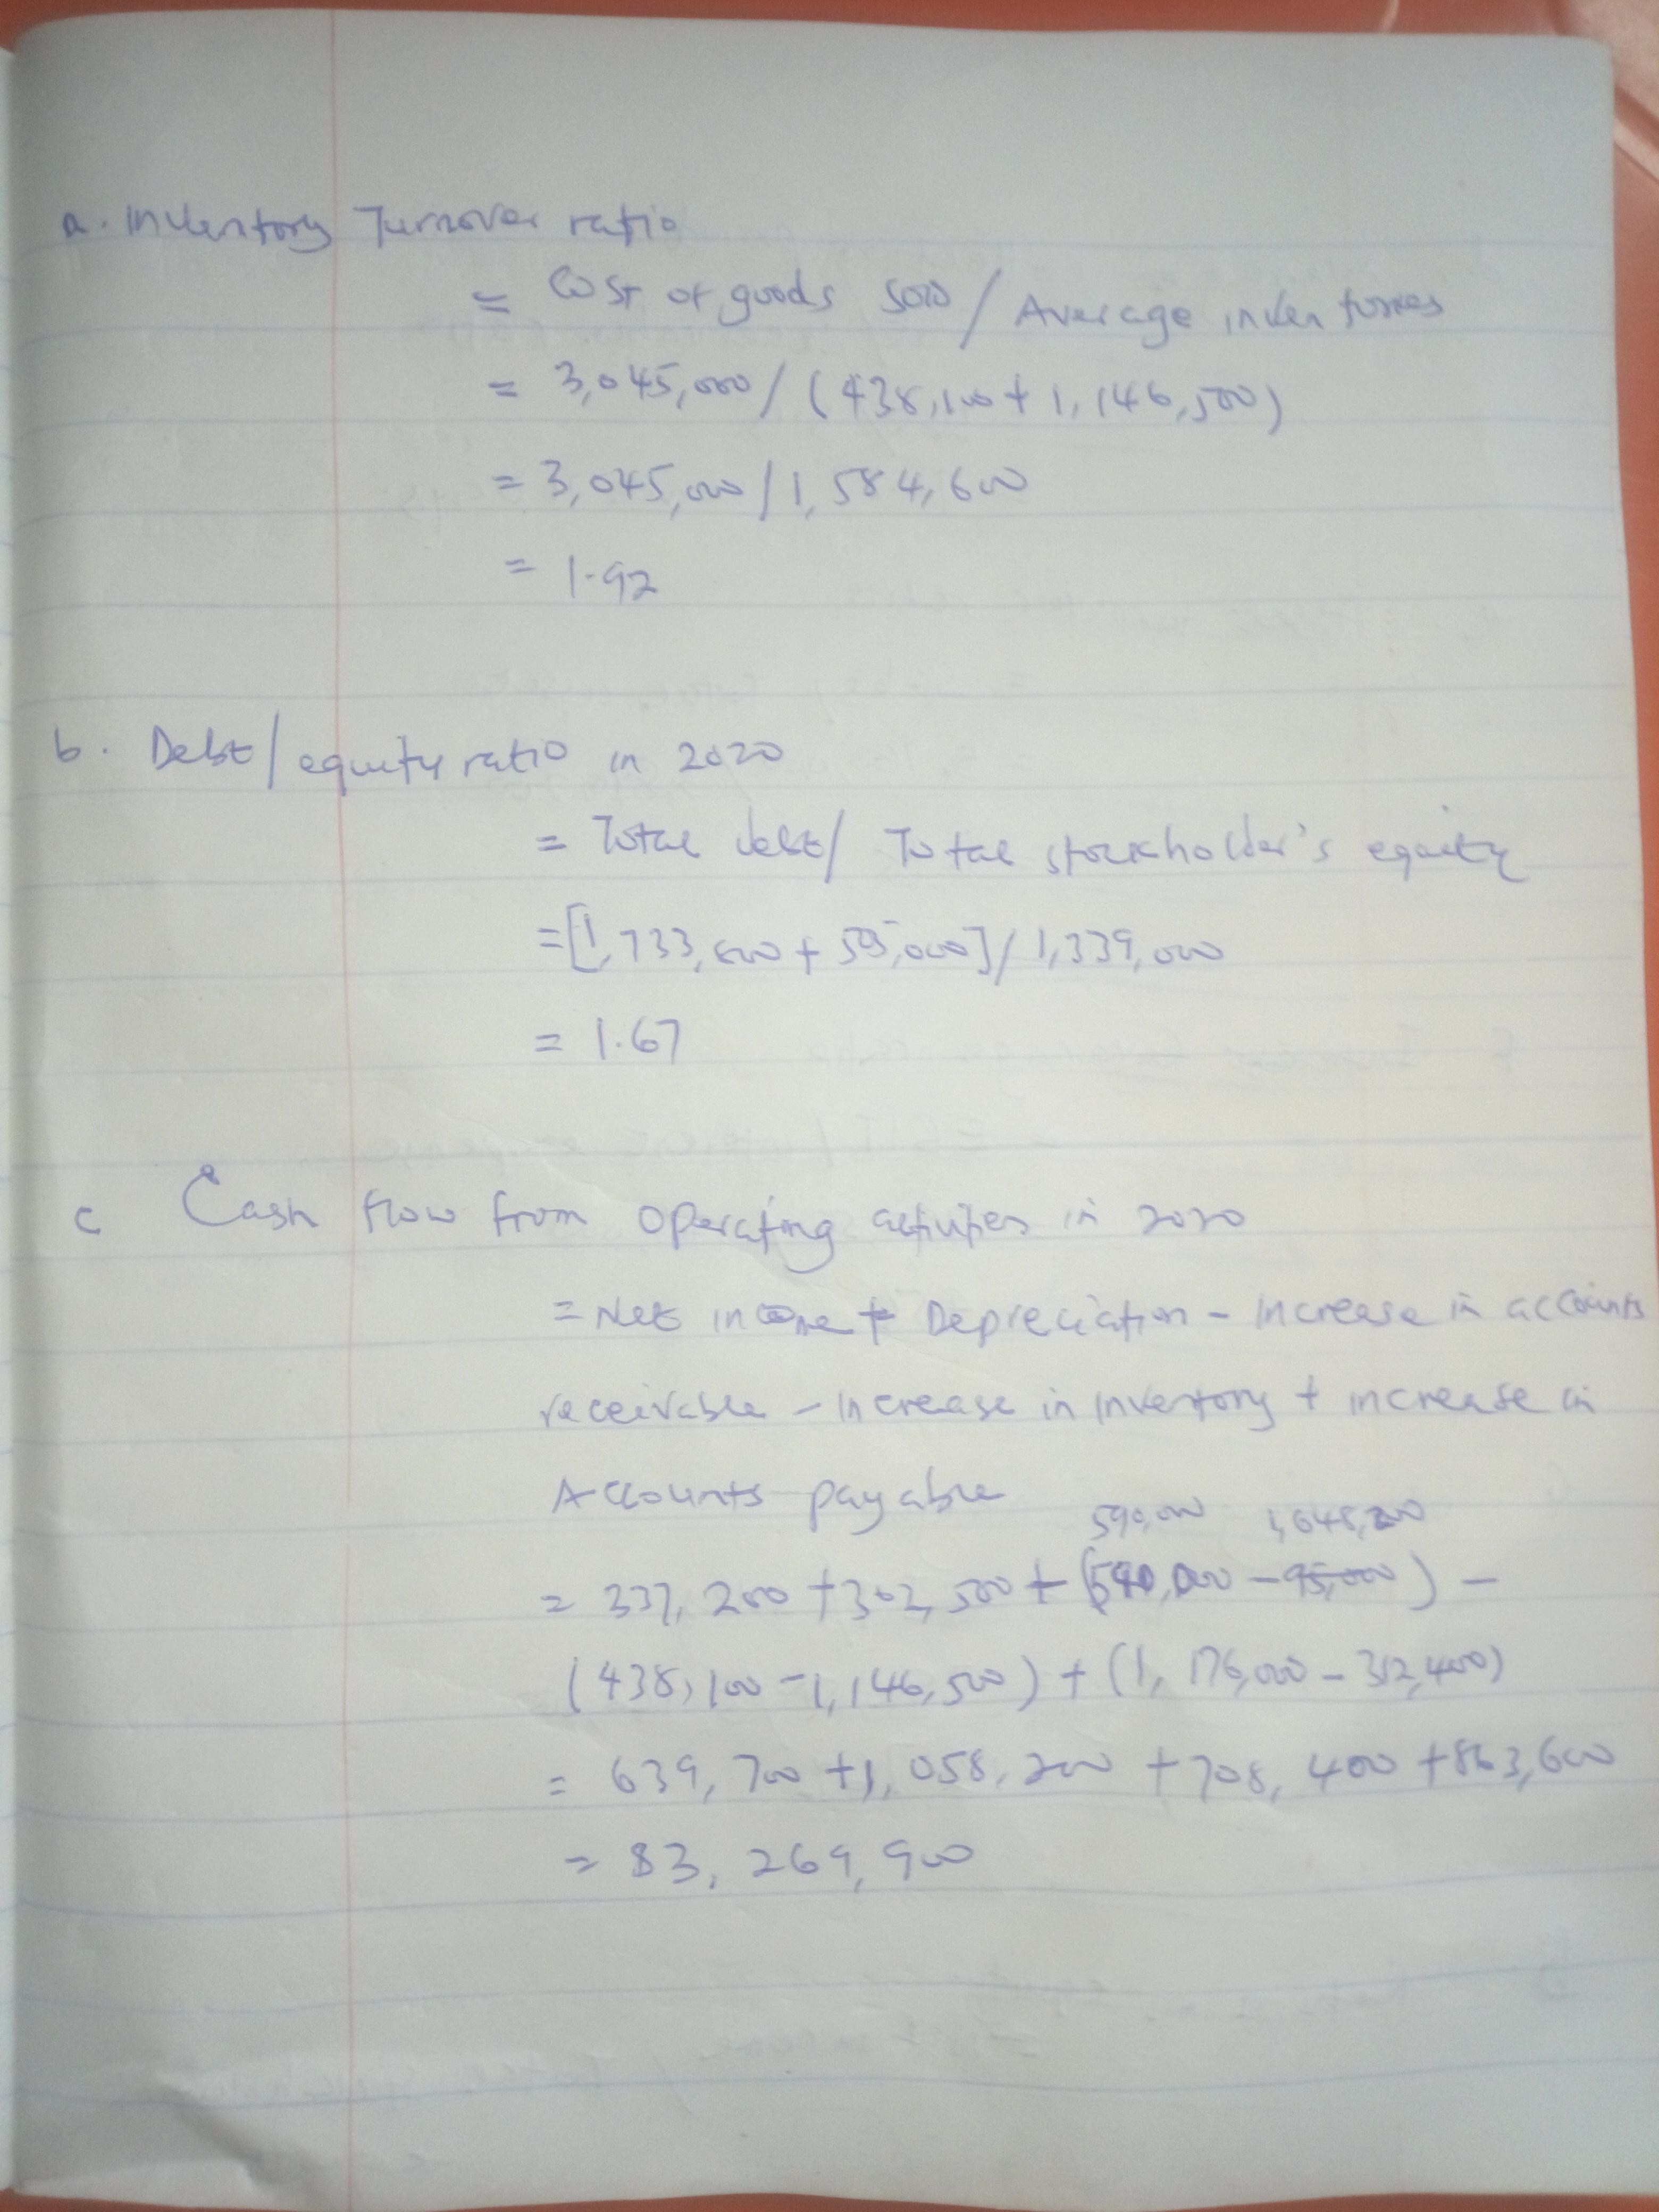 a. Inventory Turnover ratio
= Cost of goods sold / Average inventories
= 3,045,000 / (438,100 + 1,146,500)
= 3,045,000 / 1,584,600
= 1.92
b. Debt / equity ratio in 2020
= Total debt / Total stockholder's equity
= [1,733,600 + 505,000] / 1,339,000
= 1.67
c Cash flow from operating activities in 2020
= Net income + Depreciation - Increase in accounts
receivable - Increase in Inventory + increase in
Accounts payable
590,000 1,648,200
= 337,200 + 302,500 + ( - ) -
(438,100 - 1,146,500) + (1,176,000 - 312,400)
= 639,700 + 1,058,200 + 708,400 + 863,600
= 83,269,900